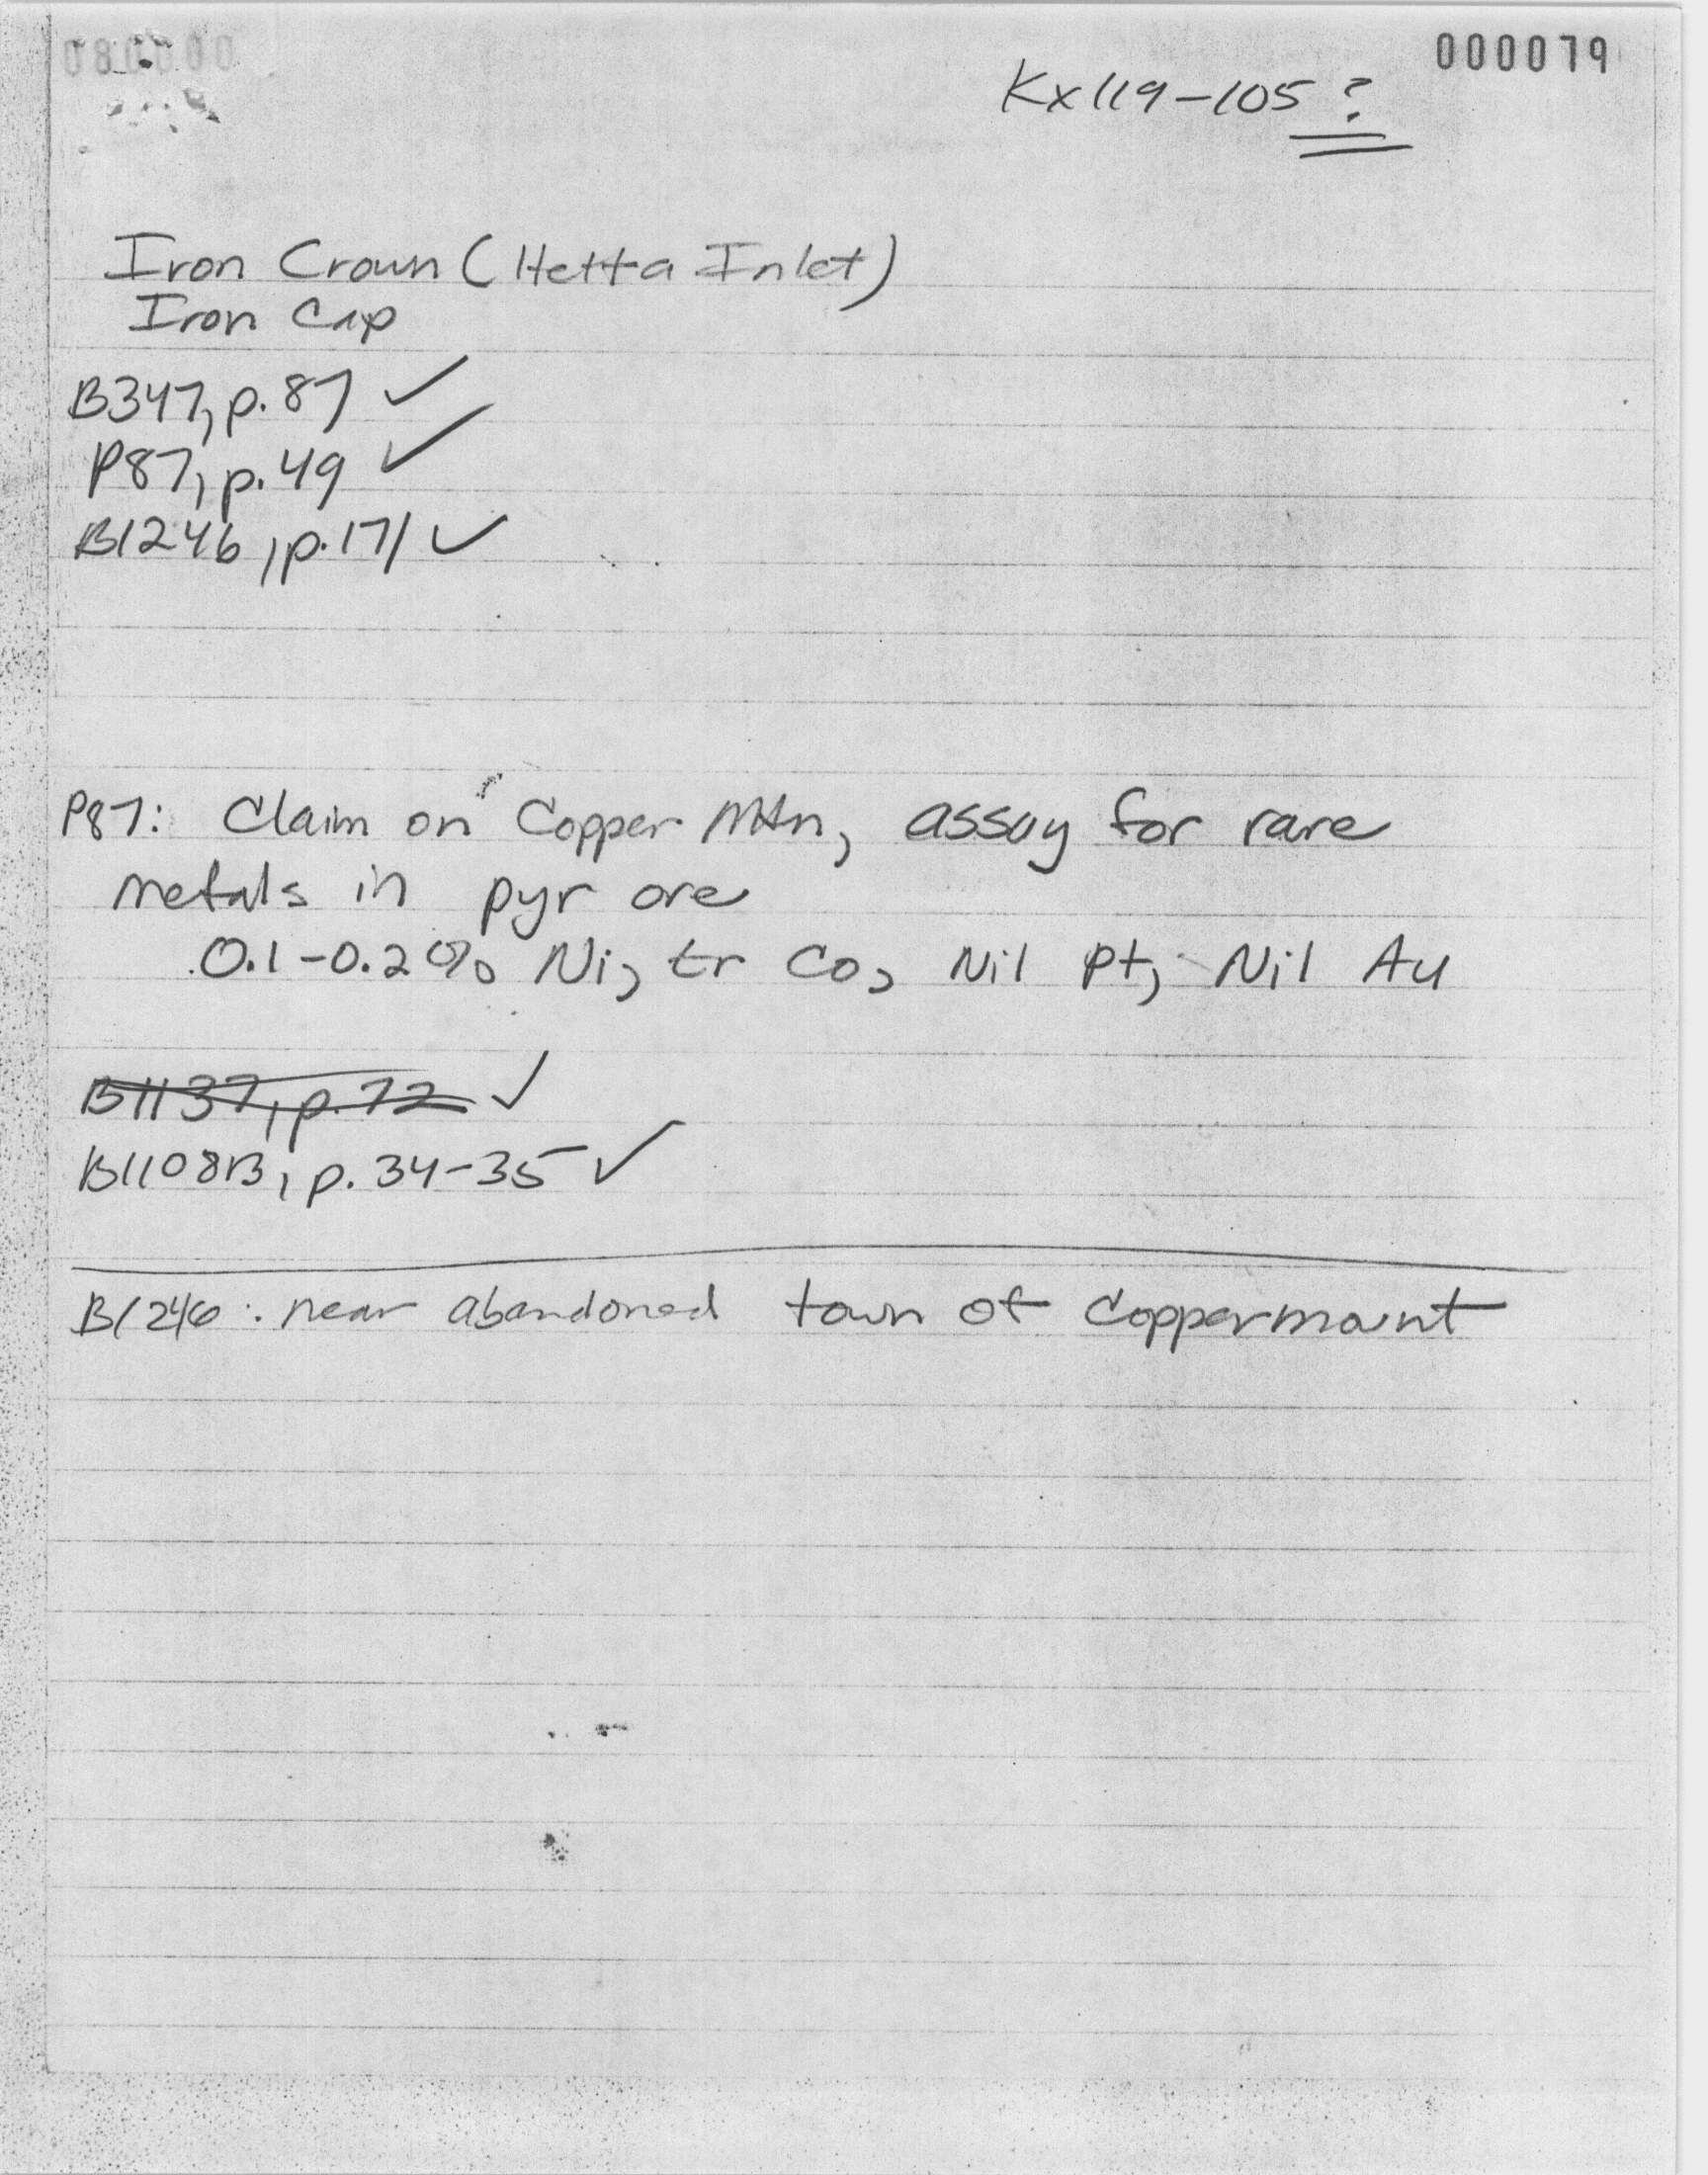 000079
Kx119-105 ?
Iron Crown (Hetta Inlet)
Iron Cap
B347, p.87 ✓
P87, p.49 ✓
B1246, p.171 ✓
P87: Claim on Copper Mtn, assay for rare
metals in pyr ore
0.1-0.2% Ni, tr Co, Nil Pt, Nil Au
B1137, p.72 ✓
B1108B, p. 34-35 ✓
B1246: near abandoned town of Coppermount